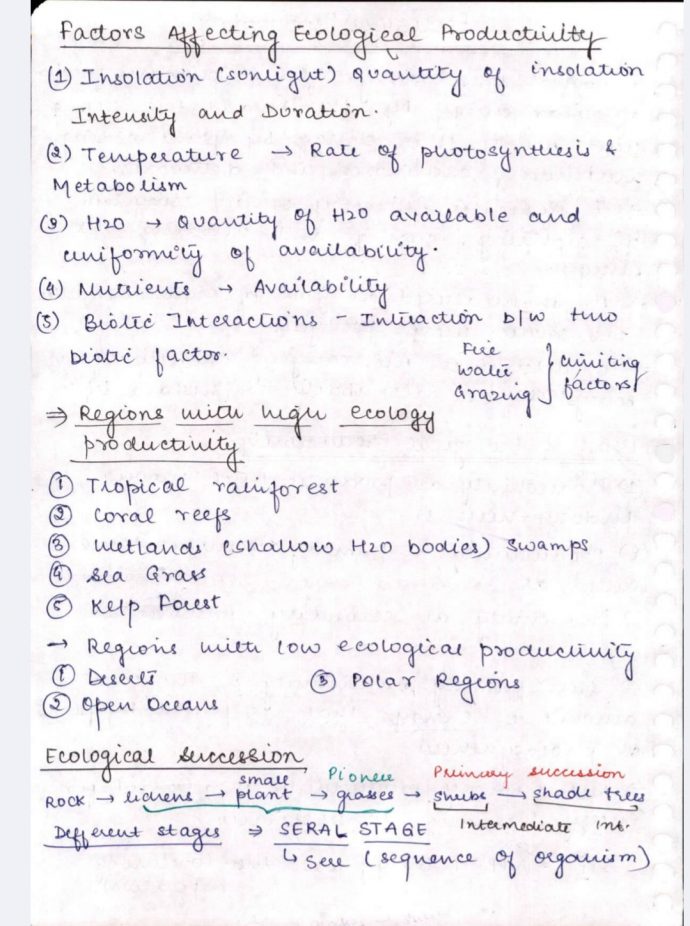 Factors Affecting Ecological Productivity
(1) Insolation (sunlight) quantity of insolation
Intensity and Duration.
(2) Temperature → Rate of photosynthesis &
Metabolism
(3) H2O → Quantity of H2O available and
uniformity of availability.
(4) Nutrients → Availability
(5) Biotic Interactions - Interaction b/w two
biotic factor.
Fire
Water
Grazing } limiting factors
⇒ Regions with high ecology
productivity
① Tropical rainforest
② Coral reefs
③ Wetlands (shallow H2O bodies) Swamps
④ Sea Grass
⑤ Kelp Forest
→ Regions with low ecological productivity
① Deserts ③ Polar Regions
② Open Oceans
Ecological Succession
small Pioneer Primary succession
ROCK → lichens → plant → grasses → shrubs → shade trees
Intermediate Int.
Different stages ⇒ SERAL STAGE
↳ Sere (sequence of organism)